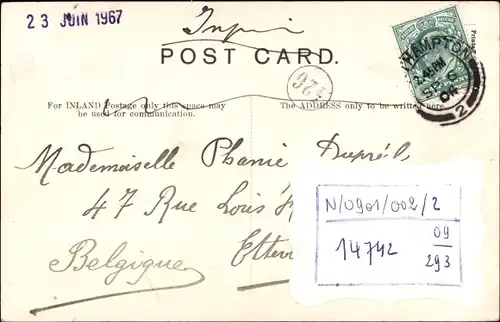 23 JUIN 1967
POST CARD.
HAMPTON
2.45PM
SP 5
04
2
926
For INLAND Postage only this space may
be used for communication.
The ADDRESS only to be written here.
Mademoiselle Phanie Dupréil
47 Rue Louis
Belgique
N/0901/002/2
14742
09
293